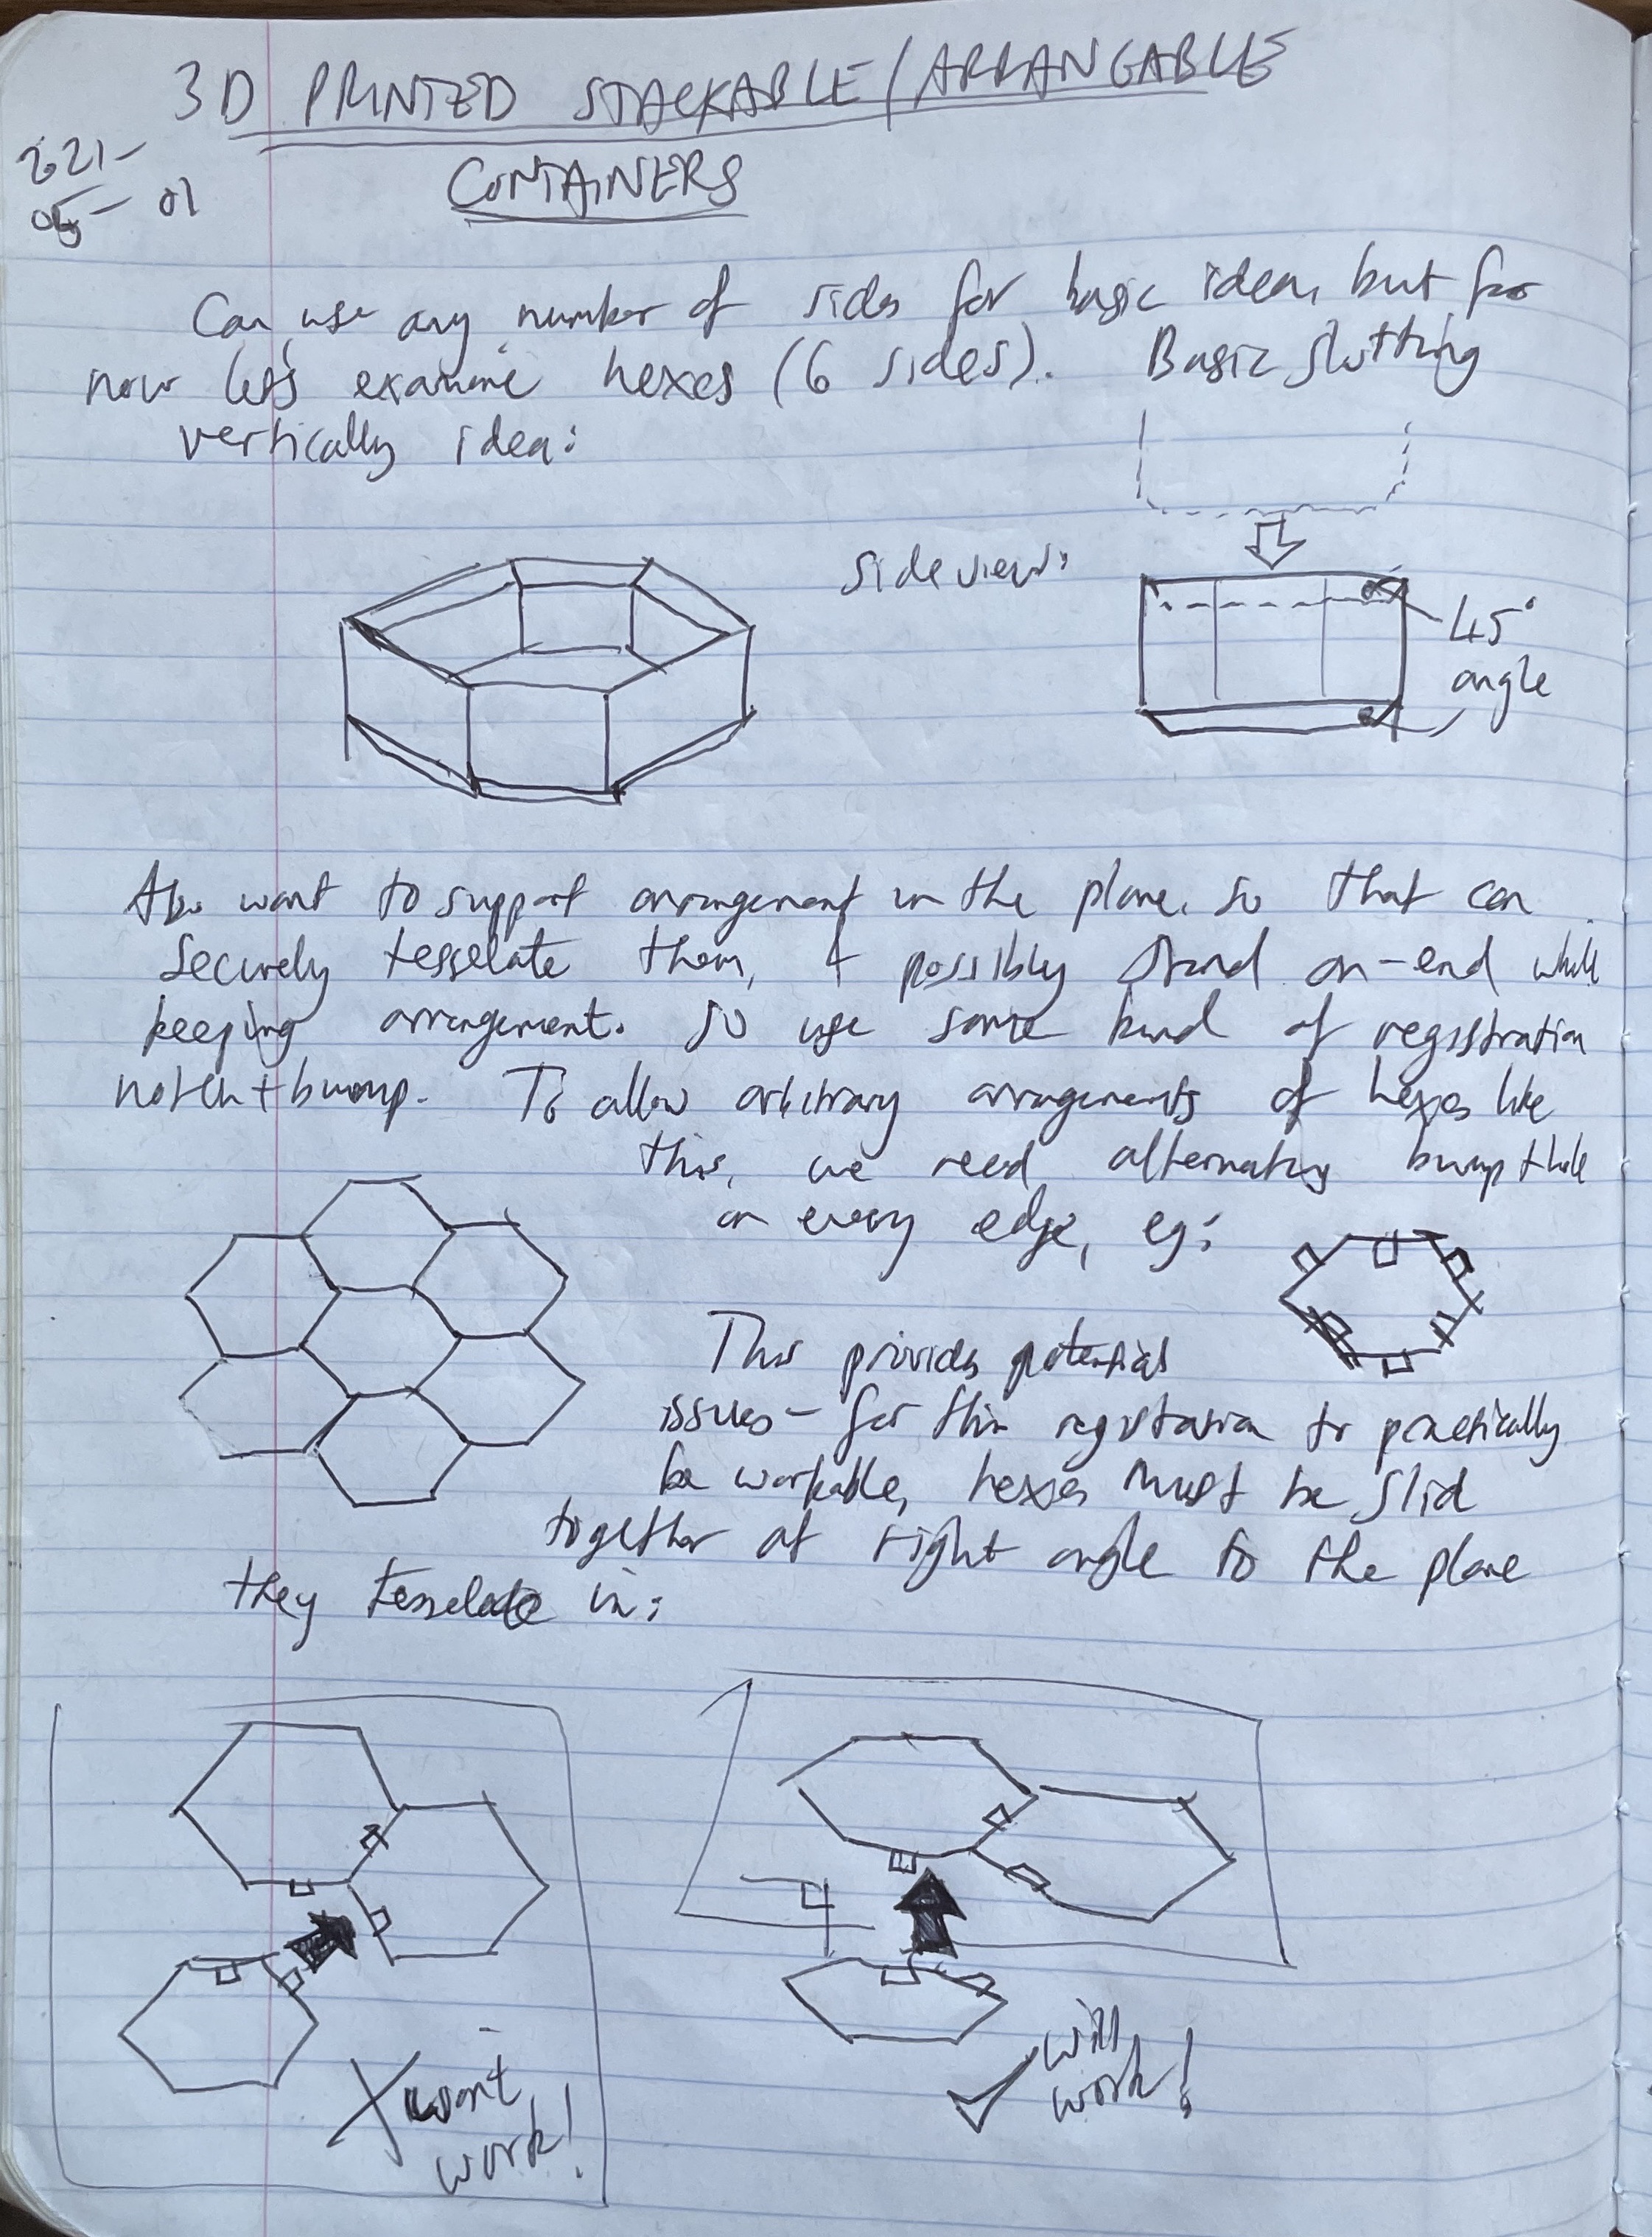 3D PRINTED STACKABLE/ARRANGABLE
CONTAINERS
2021-
05-01
Can use any number of sides for basic idea, but for
now let's examine hexes (6 sides). Basic slotting
vertically idea:
side view:
45°
angle
Also want to support arrangement in the plane, so that can
securely tesselate them, + possibly stand on-end while
keeping arrangement. So use some kind of registration
notch + bump. To allow arbitrary arrangements of hexes like
this, we need alternating bump + hole
on every edge, eg:
This provides potential
issues - for this registration to practically
be workable, hexes must be slid
together at right angle to the plane
they tesselate in:
X won't
work!
✓ will
work!